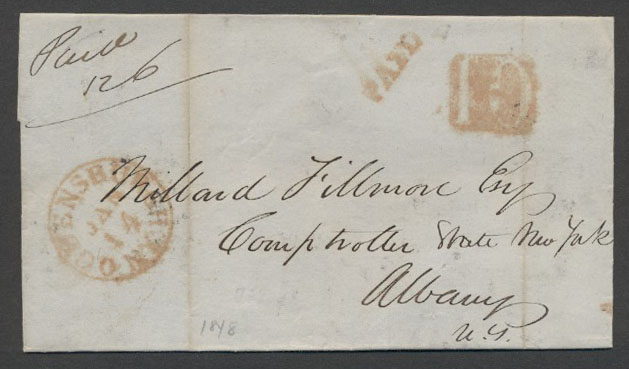 Paid
126
PAID
10
OGDENSBURGH N.Y.
JAN
14
Millard Fillmore Esq
Comptroller State New York
Albany
N.Y.
1848